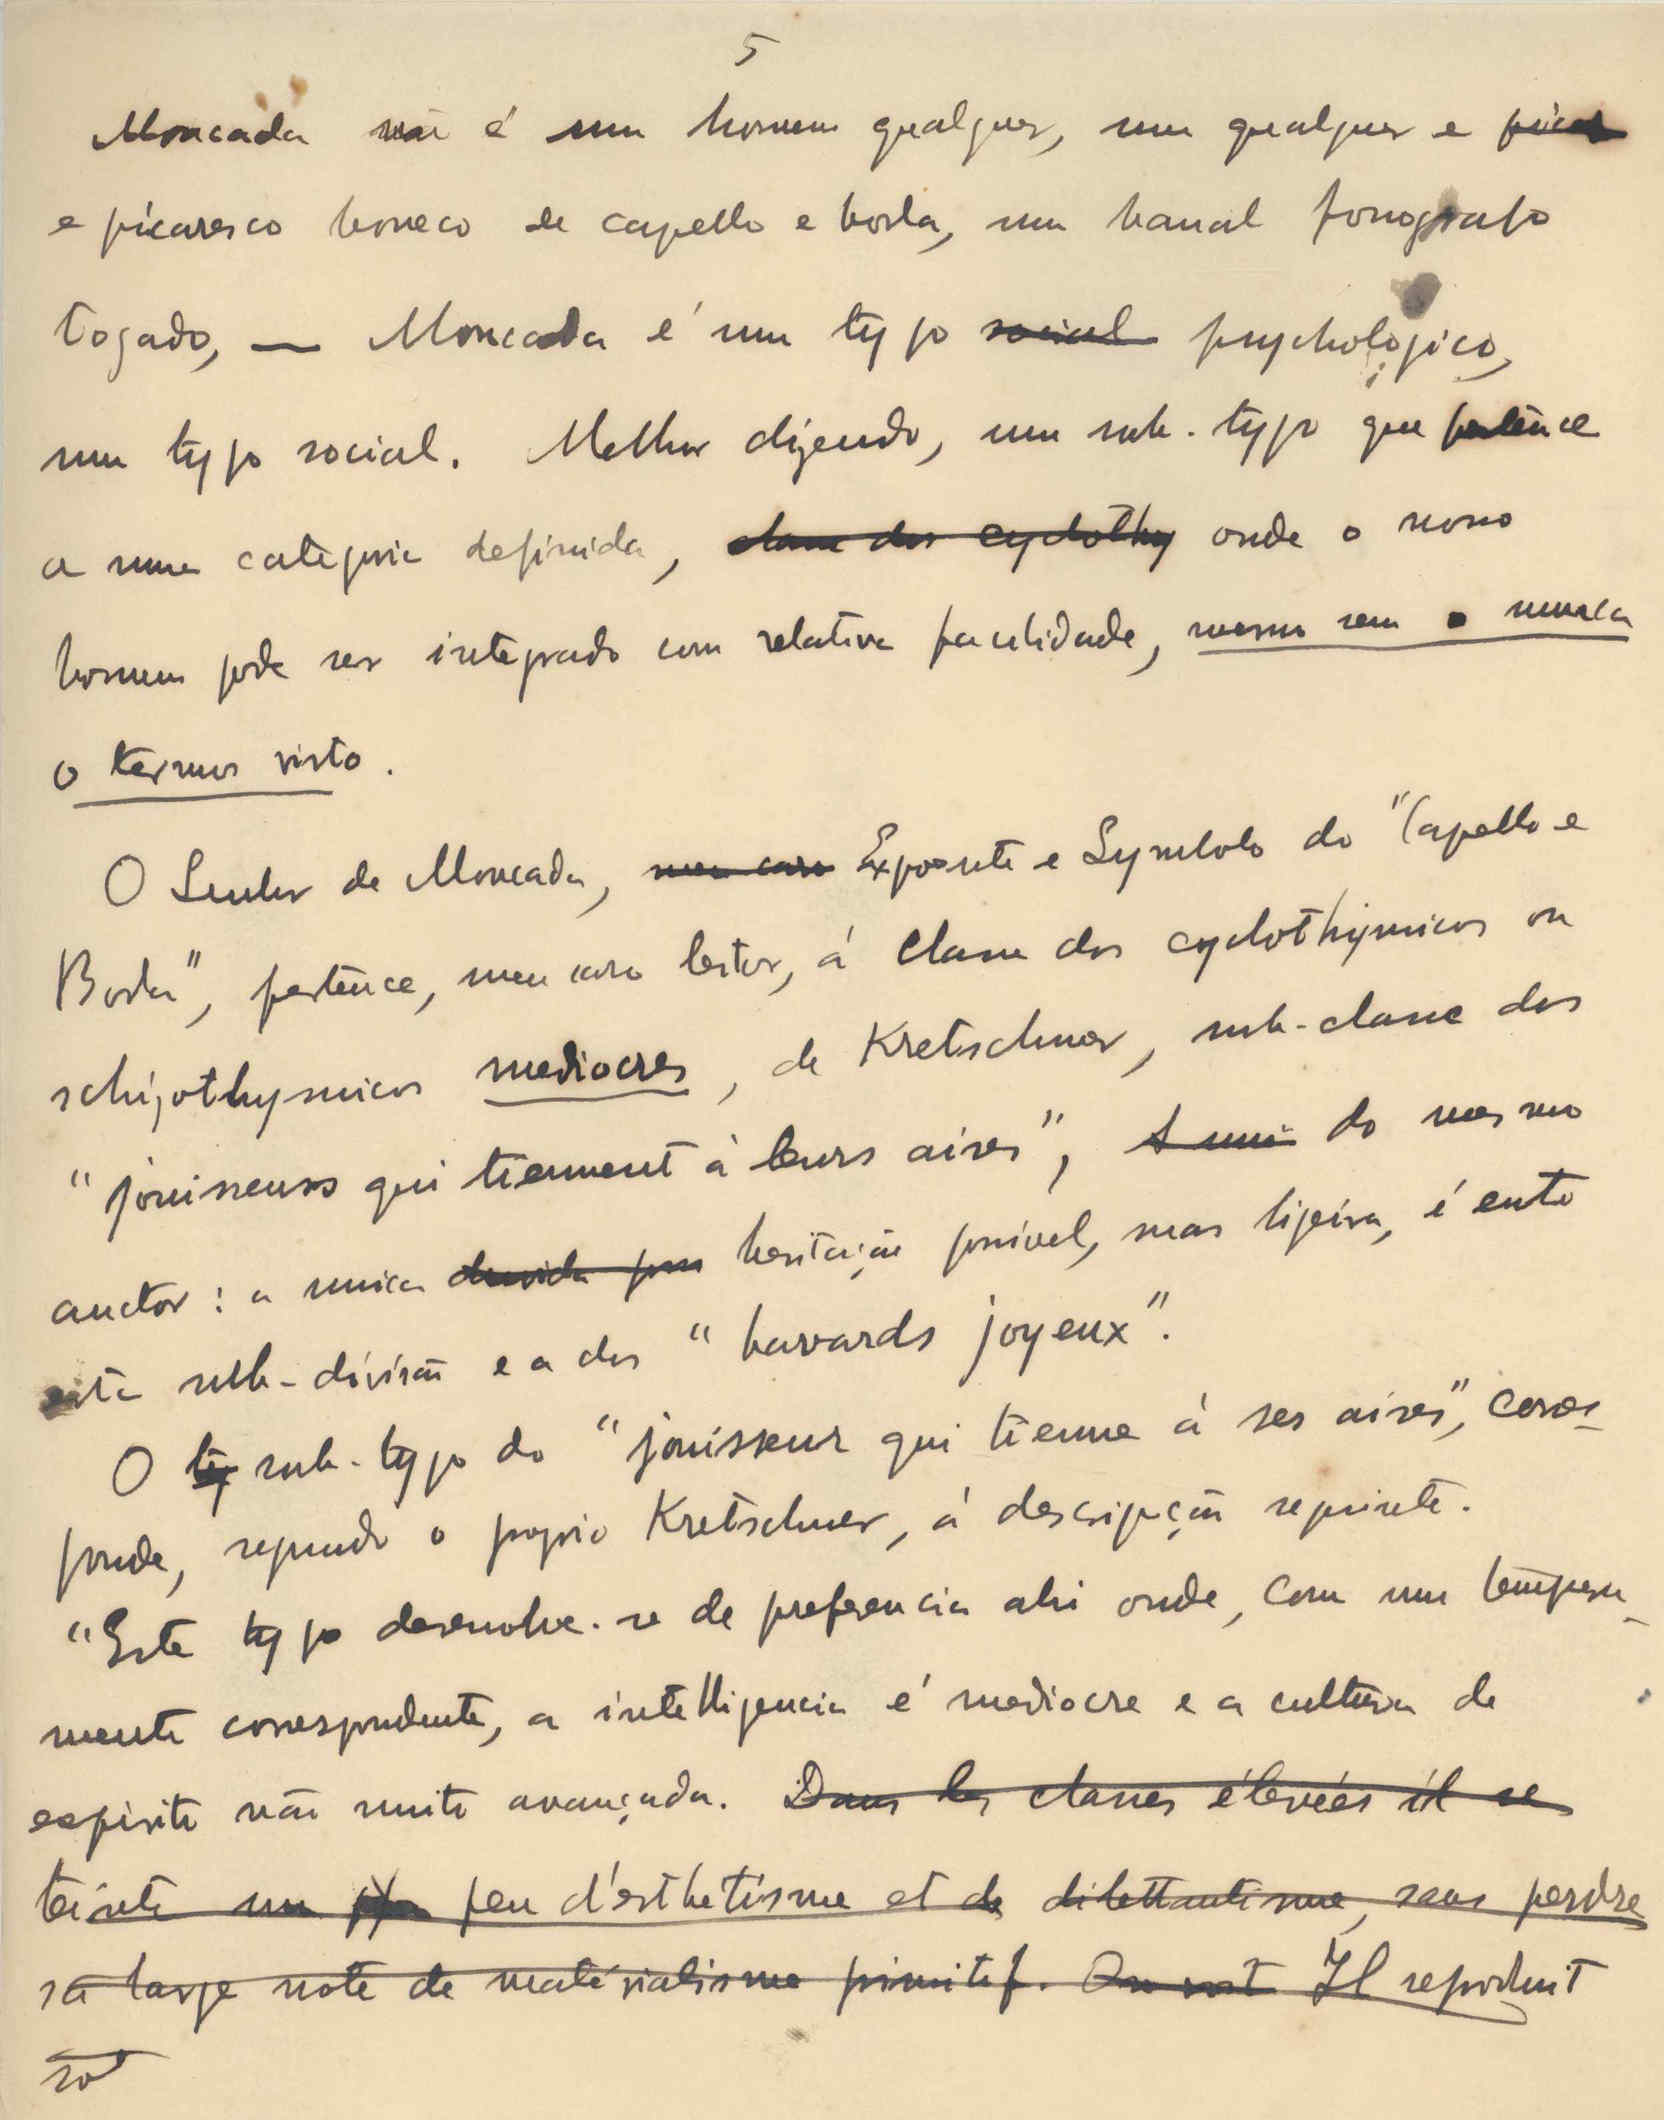 5
Moncada não é um homem qualquer, um qualquer e
e picaresco boneco de capello e borla, um banal fonografo
togado, — Moncada é um typo social psychologico,
um typo social. Melhor dizendo, um sub-typo que pertence
a uma categoria definida, classe dos cyclothy onde o nosso
homem pode ser integrado com relativa facilidade, mesmo sem nunca
o termos visto.
O Senhor de Moncada, meu caro Expoente e Symbolo do "Capello e
Borla", pertence, meu caro leitor, á classe dos cyclothymicos ou
schizothymicos mediocres, de Kretschmer, sub-classe dos
"jouisseurs qui tiennent à leurs aises", do mesmo
auctor: a unica duvida poss hesitação possivel, mas ligeira, é entre
esta sub-divisão e a dos "bavards joyeux".
O ty sub-typo do "jouisseur qui tienne à ses aises", corres-
ponde, segundo o proprio Kretschmer, á descripção seguinte.
"Este typo desenvolve-se de preferencia ahi onde, com um tempera-
mento correspondente, a intelligencia é mediocre e a cultura de
espirito não muito avançada. Dans les classes élevées il se
teinte un peu d'esthétisme et de dilettantisme, sans perdre
sa large note de matérialisme primitif. On voit Il reproduit